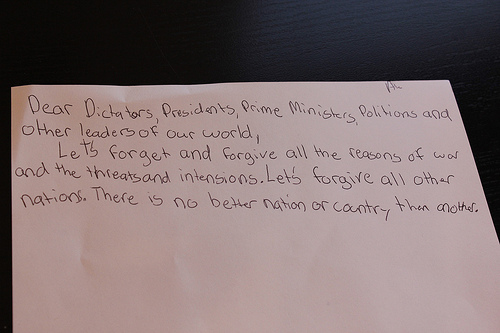 Dear Dictators, Presidents, Prime Ministers, Politions and
other leaders of our world,
Let's forget and forgive all the reasons of war
and the threats and intensions. Let's forgive all other
nations. There is no better nation or country then another.